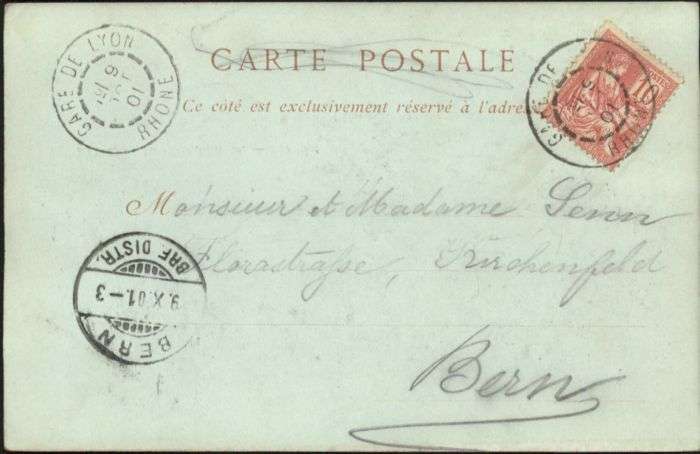 CARTE POSTALE
Ce côté est exclusivement réservé à l'adresse
GARE DE LYON
RHONE
6
01
GARE DE
RHONE
01
10
Monsieur et Madame Senn
Florastrasse, Kirchenfeld
Bern
BERN
9.X.01.-3
BRF. DISTR.